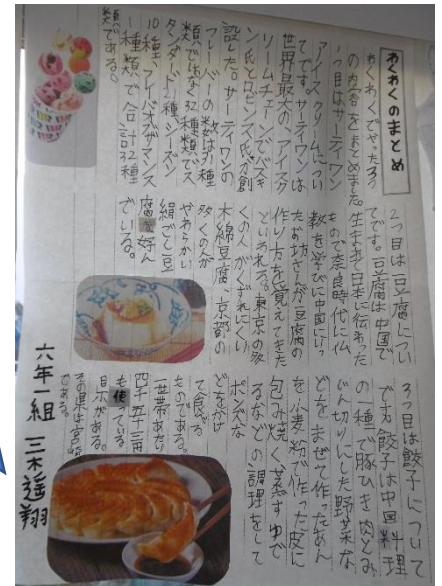 わくわくのまとめ
わくわくでやった3つ
の内容をまとめました。
1つ目はサーティワン
アイスクリームについ
てです。サーティワンは
世界最大の、アイスク
リームチェーンでバスキ
ン氏とロビンス氏が創
設した。サーティワンの
フレーバーの数は31種
類ではなく32種類でス
タンダード21種、シーズン
10種、フレイバオブザマンス
1種類で合計32種
類である。
2つ目は豆腐につい
てです。豆腐は中国で
生まれ、日本に伝わった
もので奈良時代に仏
教を学びに中国にいっ
たお坊さんが豆腐の
作り方を覚えてきた
といわれる。東京の多
くの人がくずれにくい
木綿豆腐、京都の
多くの人が
やわらかい
絹ごし豆
腐を好ん
でいる。
3つ目は餃子について
です。餃子は中国料理
の一種で豚ひき肉とみ
じん切りにした野菜な
どをまぜて作ったあん
を小麦粉で作った皮に
包み焼く蒸すゆで
るなどの調理をして
ポンズな
どをかけ
て食べる
ものである。
一世帯あたり
四千五十三円
も使っている
県がある。
その県は宮崎
である。
六年一組 三木遥翔